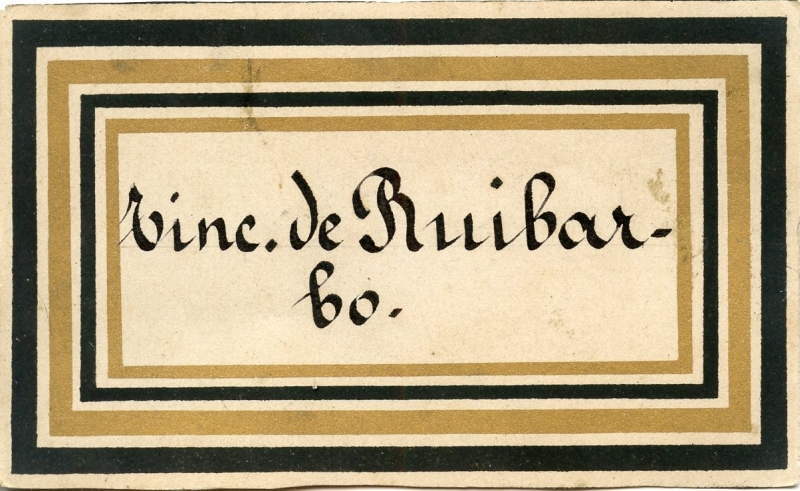 Tinc. de Ruibar-
bo.